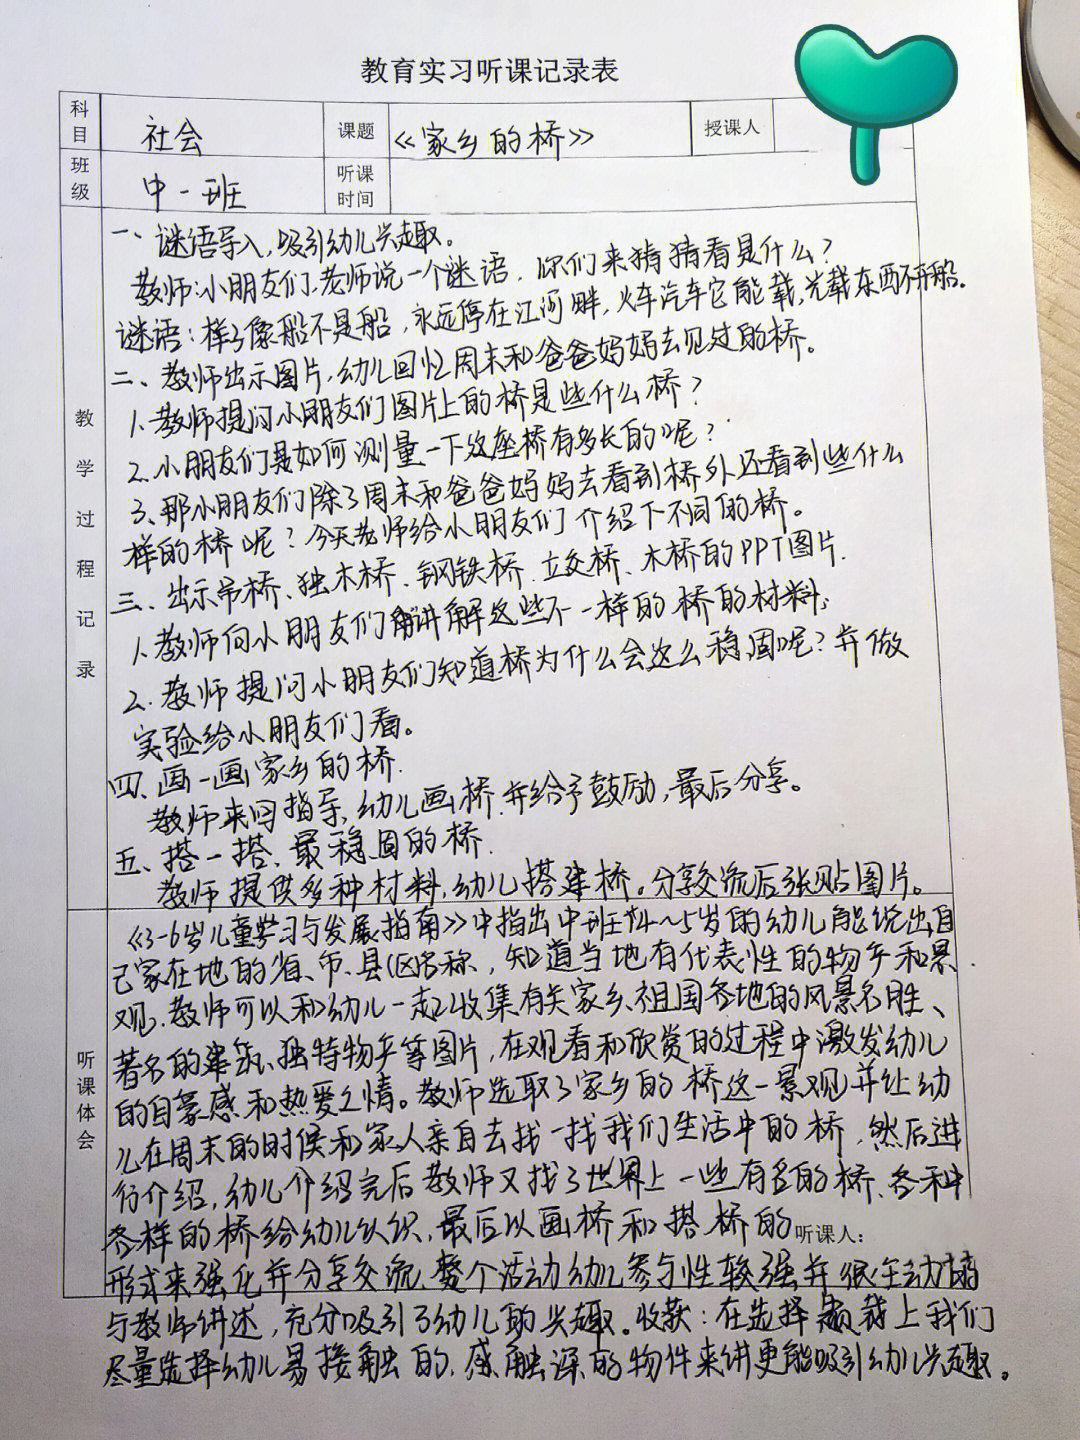 教育实习听课记录表
科目 社会 课题 《家乡的桥》 授课人
班级 中一班 听课时间
教学过程记录
一、谜语导入，吸引幼儿兴趣。
教师：小朋友们，老师说一个谜语，你们来猜猜看是什么？
谜语：样子像船不是船，永远停在江河畔，火车汽车它能载，光载东西不开船。
二、教师出示图片，幼儿回忆周末和爸爸妈妈去见过的桥。
1、教师提问小朋友们图片上的桥是些什么桥？
2、小朋友们是如何测量一下这座桥有多长的呢？
3、那小朋友们除了周末和爸爸妈妈去看到桥外还看到些什么
样的桥呢？今天老师给小朋友们介绍下不同的桥。
三、出示吊桥、独木桥、钢铁桥、立交桥、木桥的PPT图片.
1、教师向小朋友们讲解这些不一样的桥的材料；
2、教师提问小朋友们知道桥为什么会这么稳固呢？并做
实验给小朋友们看。
四、画一画家乡的桥.
教师来回指导，幼儿画桥并给予鼓励，最后分享。
五、搭一搭、最稳固的桥.
教师提供多种材料，幼儿搭建桥。分享交流后张贴图片。
听课体会
《3-6岁儿童学习与发展指南》中指出中班在4~5岁的幼儿能说出自
己家在地的省、市、县(区)名称，知道当地有代表性的物产和景
观，教师可以和幼儿一起收集有关家乡、祖国各地的风景名胜、
著名的建筑、独特物产等图片，在观看和欣赏的过程中激发幼儿
的自豪感和热爱之情。教师选取了家乡的桥这一景观并让幼
儿在周末的时候和家人亲自去找一找我们生活中的桥，然后进
行介绍，幼儿介绍完后教师又找了世界上一些有名的桥、各种
各样的桥给幼儿认识，最后以画桥和搭桥的 听课人：
形式来强化并分享交流，整个活动幼儿参与性较强并很生动
与教师讲述，充分吸引了幼儿的兴趣。收获：在选择题材上我们
尽量选择幼儿易接触的、感触深的物件来讲更能吸引幼儿兴趣。